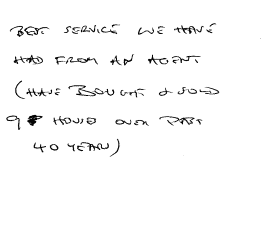 BEST SERVICE WE HAVE
HAD FROM AN AGENT
(HAVE BOUGHT & SOLD
9 HOUSES OVER PAST
40 YEARS)